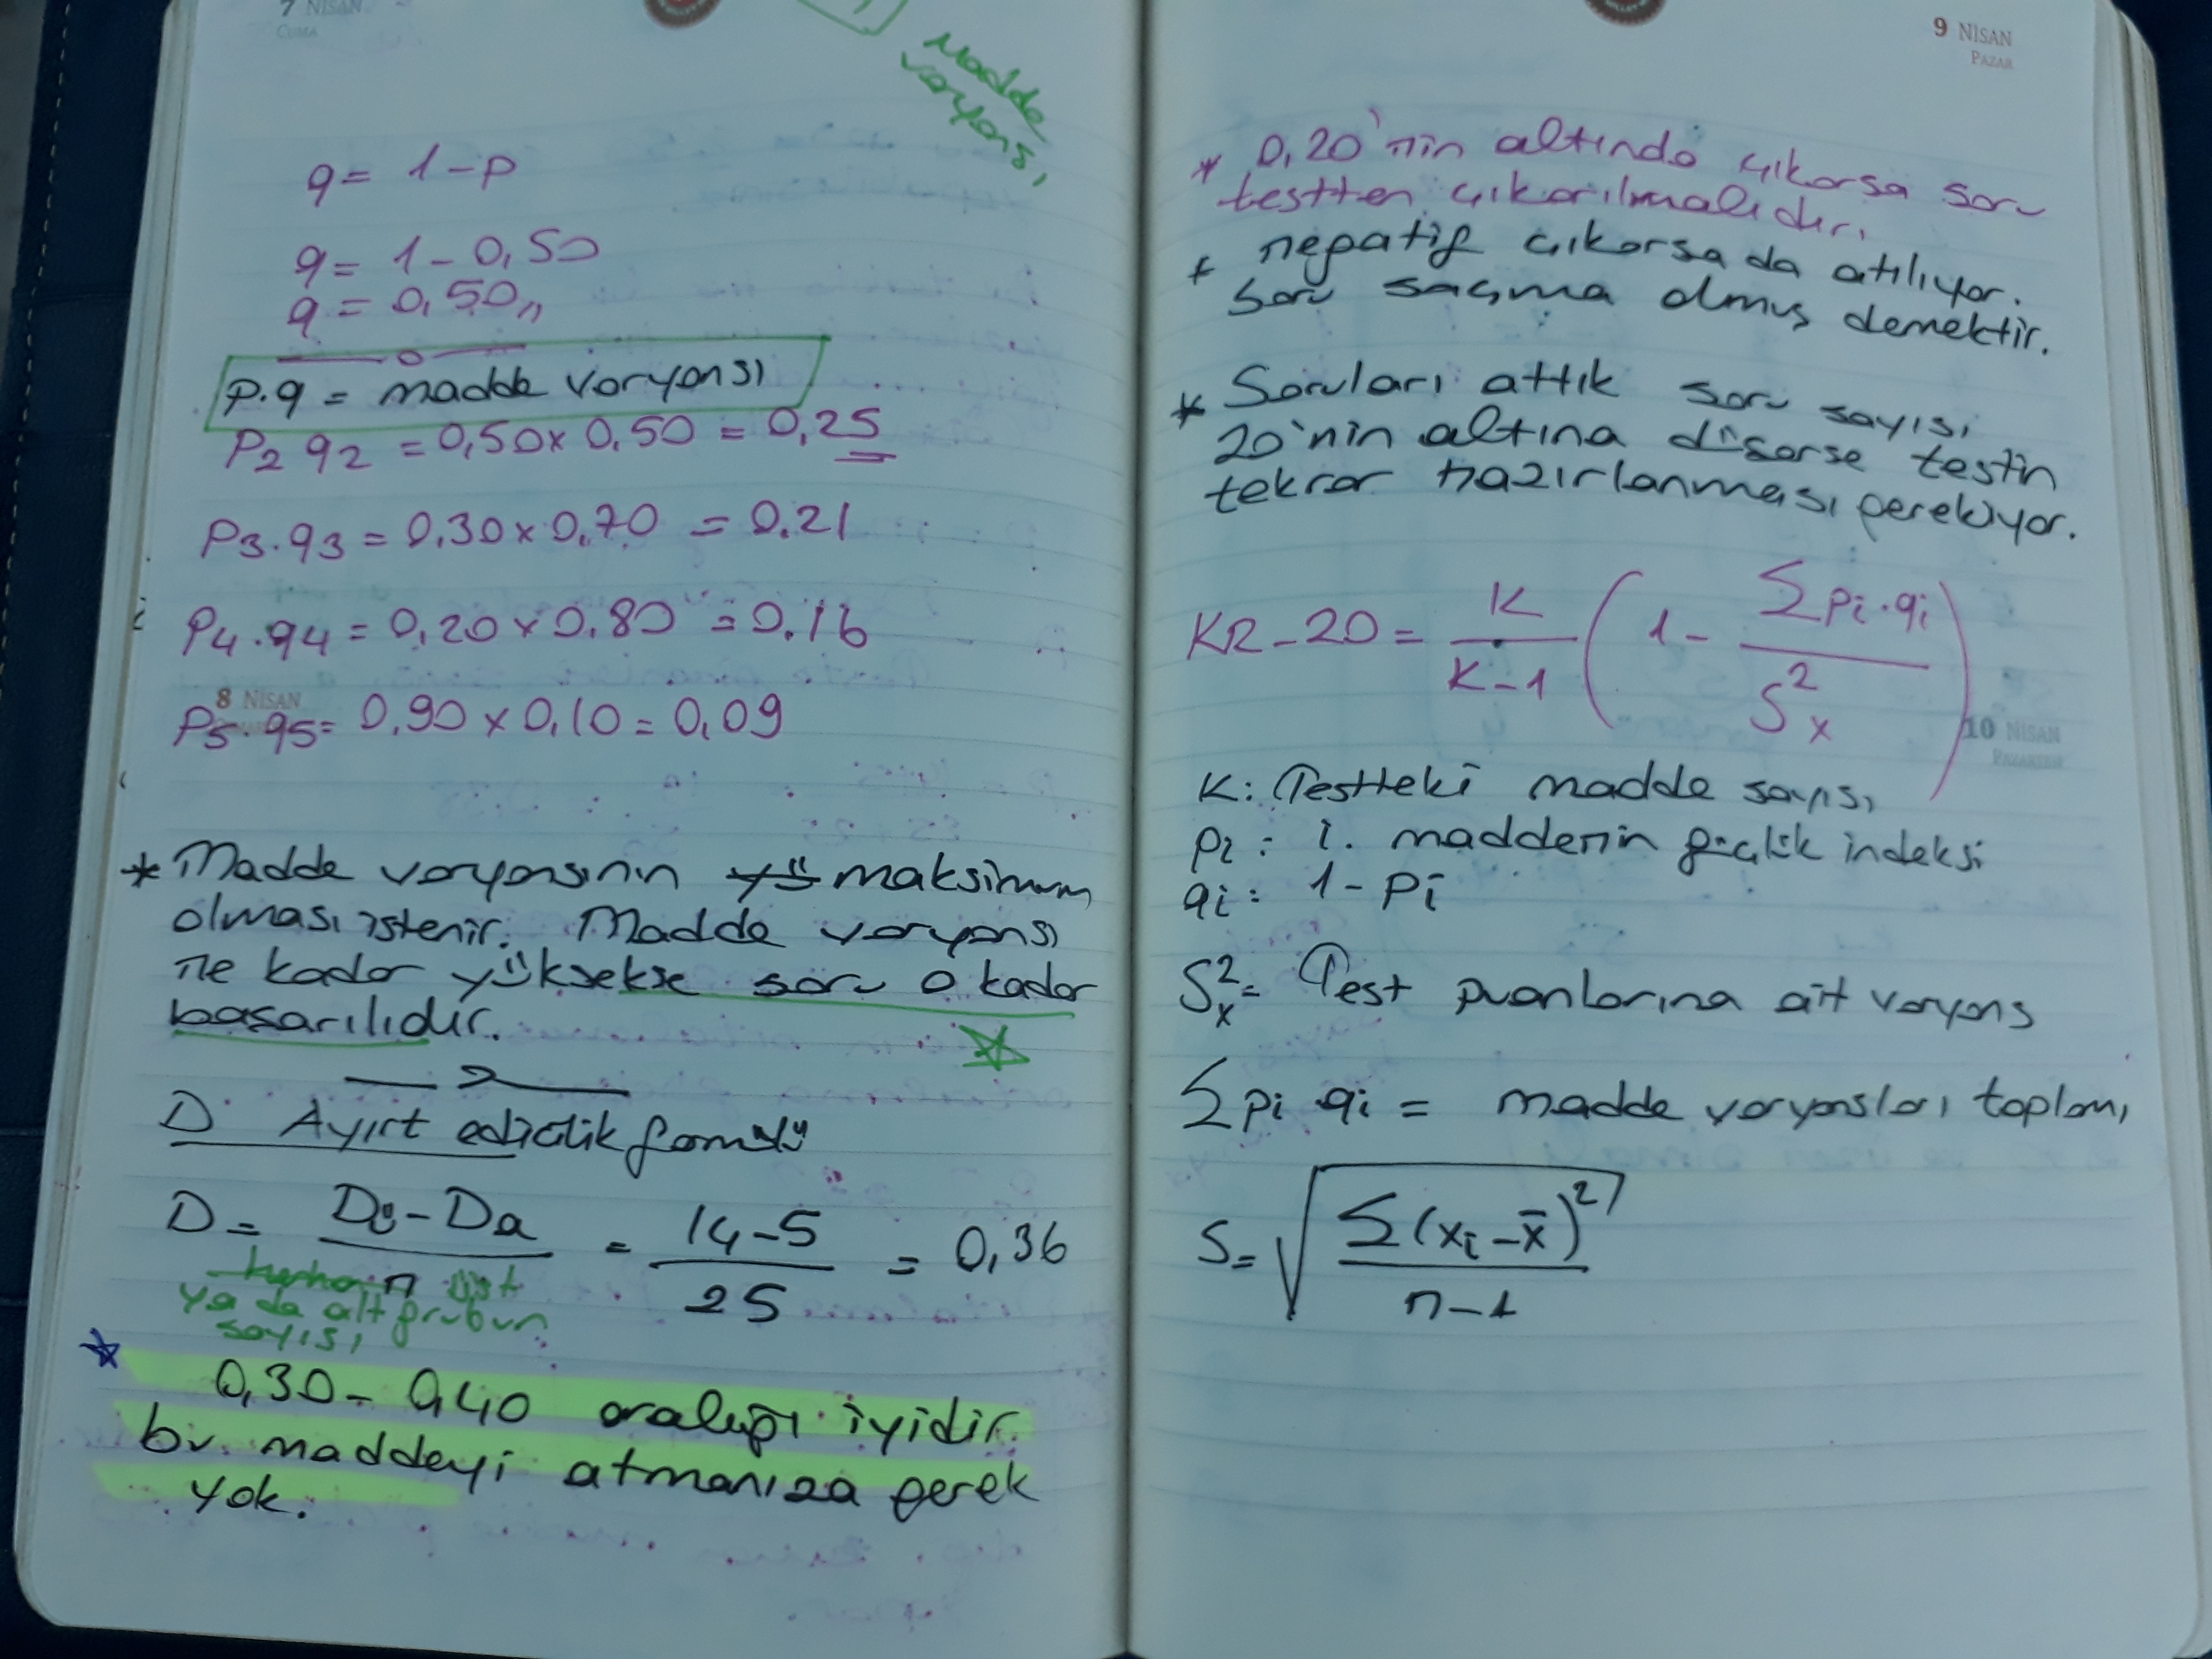 7 NİSAN
CUMA
Madde
varyansı
q = 1-p
q = 1-0,50
q = 0,50
p.q = madde varyansı
P2 q2 = 0,50 x 0,50 = 0,25
P3.q3 = 0,30 x 0,70 = 0.21
P4.q4 = 0,20 x 0,80 = 0.16
8 NİSAN
P5.q5 = 0,90 x 0,10 = 0,09
* Madde varyansının yü maksimum
olması istenir. Madde varyansı
ne kadar yüksekse soru o kadar
başarılıdır.
D: Ayırt edicilik formülü
D = Dü - Da / n = 14-5 / 25 = 0,36
üst
ya da alt grubun
sayısı
* 0,30 - 0,40 aralığı iyidir.
bu maddeyi atmanıza gerek
yok.
9 NİSAN
PAZAR
* 0,20'nin altında çıkarsa soru
testten çıkarılmalıdır.
* negatif çıkarsa da atılıyor.
Soru saçma olmuş demektir.
* Soruları attık soru sayısı
20'nin altına düşerse testin
tekrar hazırlanması gerekiyor.
KR-20 = K / K-1 ( 1 - Σpi.qi / S²x )
10 NİSAN
PAZARTESİ
K: Testteki madde sayısı
pi: i. maddenin güçlük indeksi
qi: 1-pi
S²x = Test puanlarına ait varyans
Σpi qi = madde varyansları toplamı
S = √ Σ(xi - x̄)² / n-1